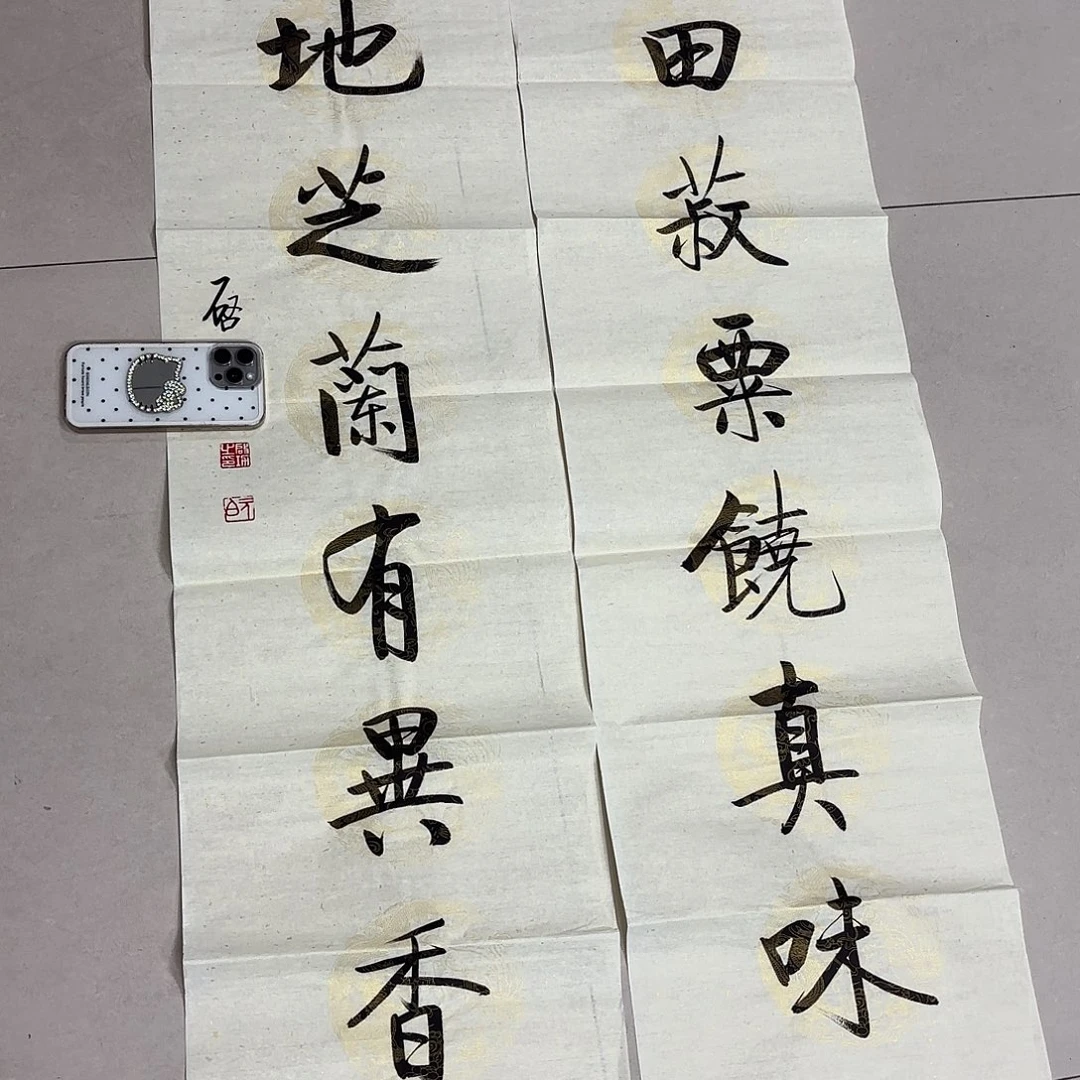 田菽粟饒真味
地芝蘭有異香
啓